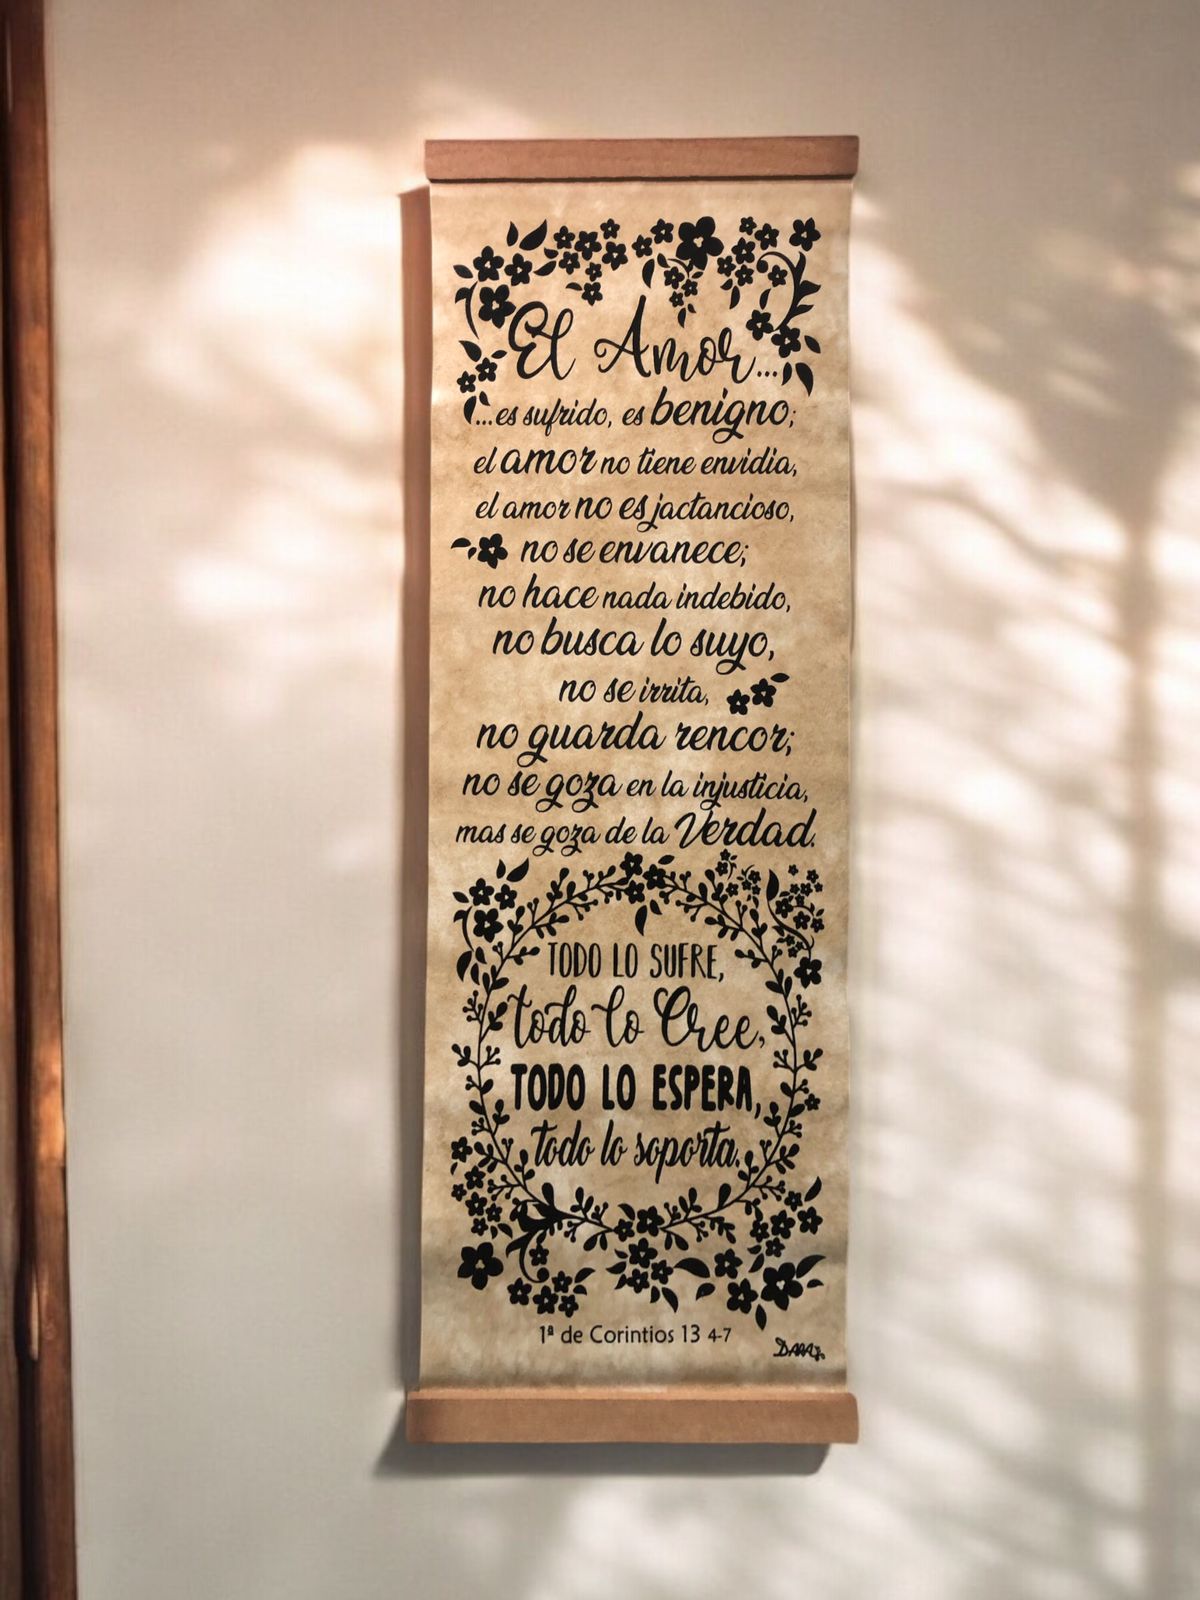 El Amor...
...es sufrido, es benigno;
el amor no tiene envidia,
el amor no es jactancioso,
no se envanece;
no hace nada indebido,
no busca lo suyo,
no se irrita,
no guarda rencor;
no se goza en la injusticia,
mas se goza de la Verdad.
TODO LO SUFRE,
todo lo Cree,
TODO LO ESPERA,
todo lo soporta.
1ª de Corintios 13 4-7